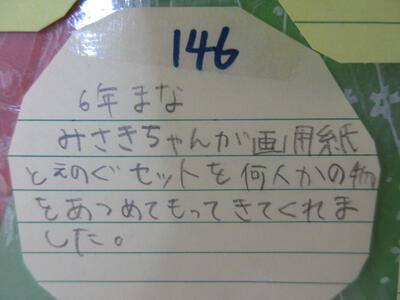 146
6年まな
みさきちゃんが画用紙
とえのぐセットを何人かの物
をあつめてもってきてくれま
した。